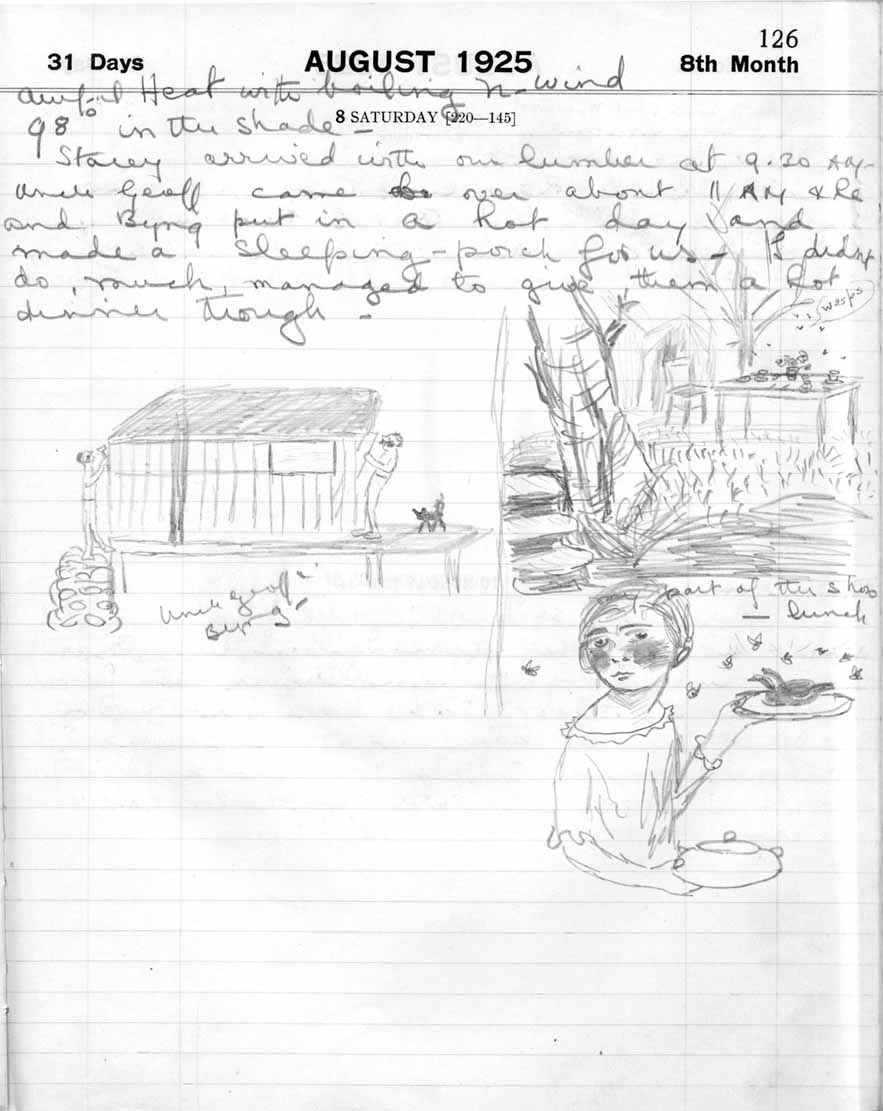 126
31 Days AUGUST 1925 8th Month
awful Heat with boiling n-wind
8 SATURDAY [220—145]
98° in the shade -
Stacey arrived with our lumber at 9.30 AM-
Uncle Geoff came over about 11 AM & he
and Byng put in a hot day and
made a sleeping-porch for us - I didn't
do, much, managed to give, them a hot
dinner though -
wasps
Uncle Geoff
Byng
my part of the show
— lunch